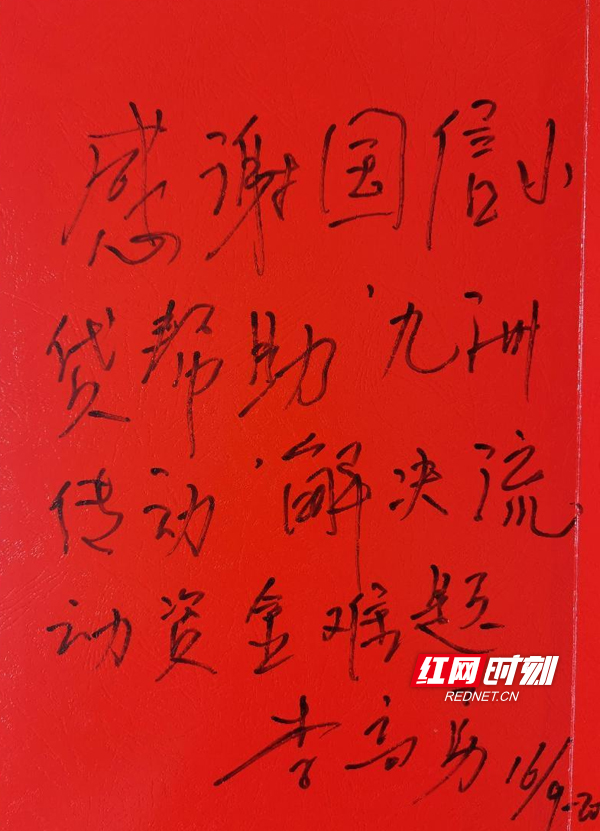 感谢国信小
贷帮助'九洲
传动'解决流
动资金难题
红网时刻
REDNET.CN
李高勇 16/9-20